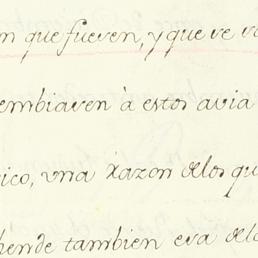 n que fueren, y que se v
embiaren à estos avia
ico, una razon delos qu
hende tambien era delo